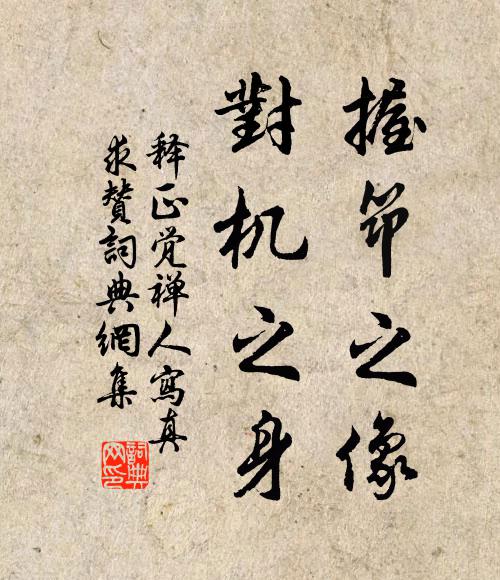 握節之像
對机之身
释正覚禅人寫真
求贊詞典網集
詞典
网印